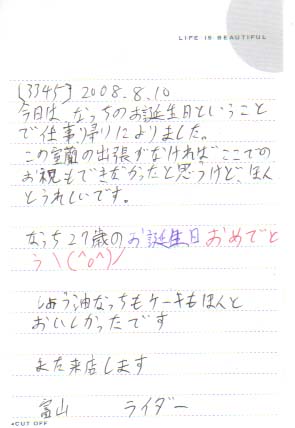 LIFE IS BEAUTIFUL
[3345] 2008.8.10
今日は、なっちのお誕生日ということ
で仕事帰りによりました。
この室蘭の出張がなければここでの
お祝もできなかったと思うけど、ほん
とうれしいです。
なっち27歳のお誕生日おめでと
う\(^o^)/
しょう油なっちもケーキもほんと
おいしかったです
また来店します
富山 ライダー
CUT OFF